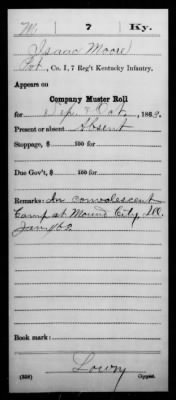 M 7 Ky.
Isaac Moore
Pvt, Co. I, 7 Reg't Kentucky Infantry.
Appears on
Company Muster Roll
for Sep & Oct, 1862.
Present or absent Absent
Stoppage, $ 100 for
Due Gov't, $ 100 for
Remarks: In convalescent
Camp at Mound City, Ill,
Jan 162
Book mark:
Lowry
(358) Copyist.